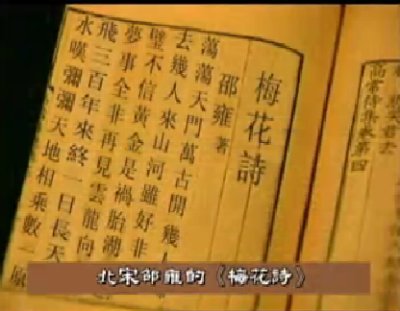 高常侍集卷第四
梅花詩
邵雍著
蕩蕩天門萬古開幾人
去幾人來山河雖好非
璧不信黃金是禍胎湖
夢事全非再見雲龍向
飛三百年來終一日長天
水嘆彌彌天地相乘數一原
北宋邵雍的《梅花詩》